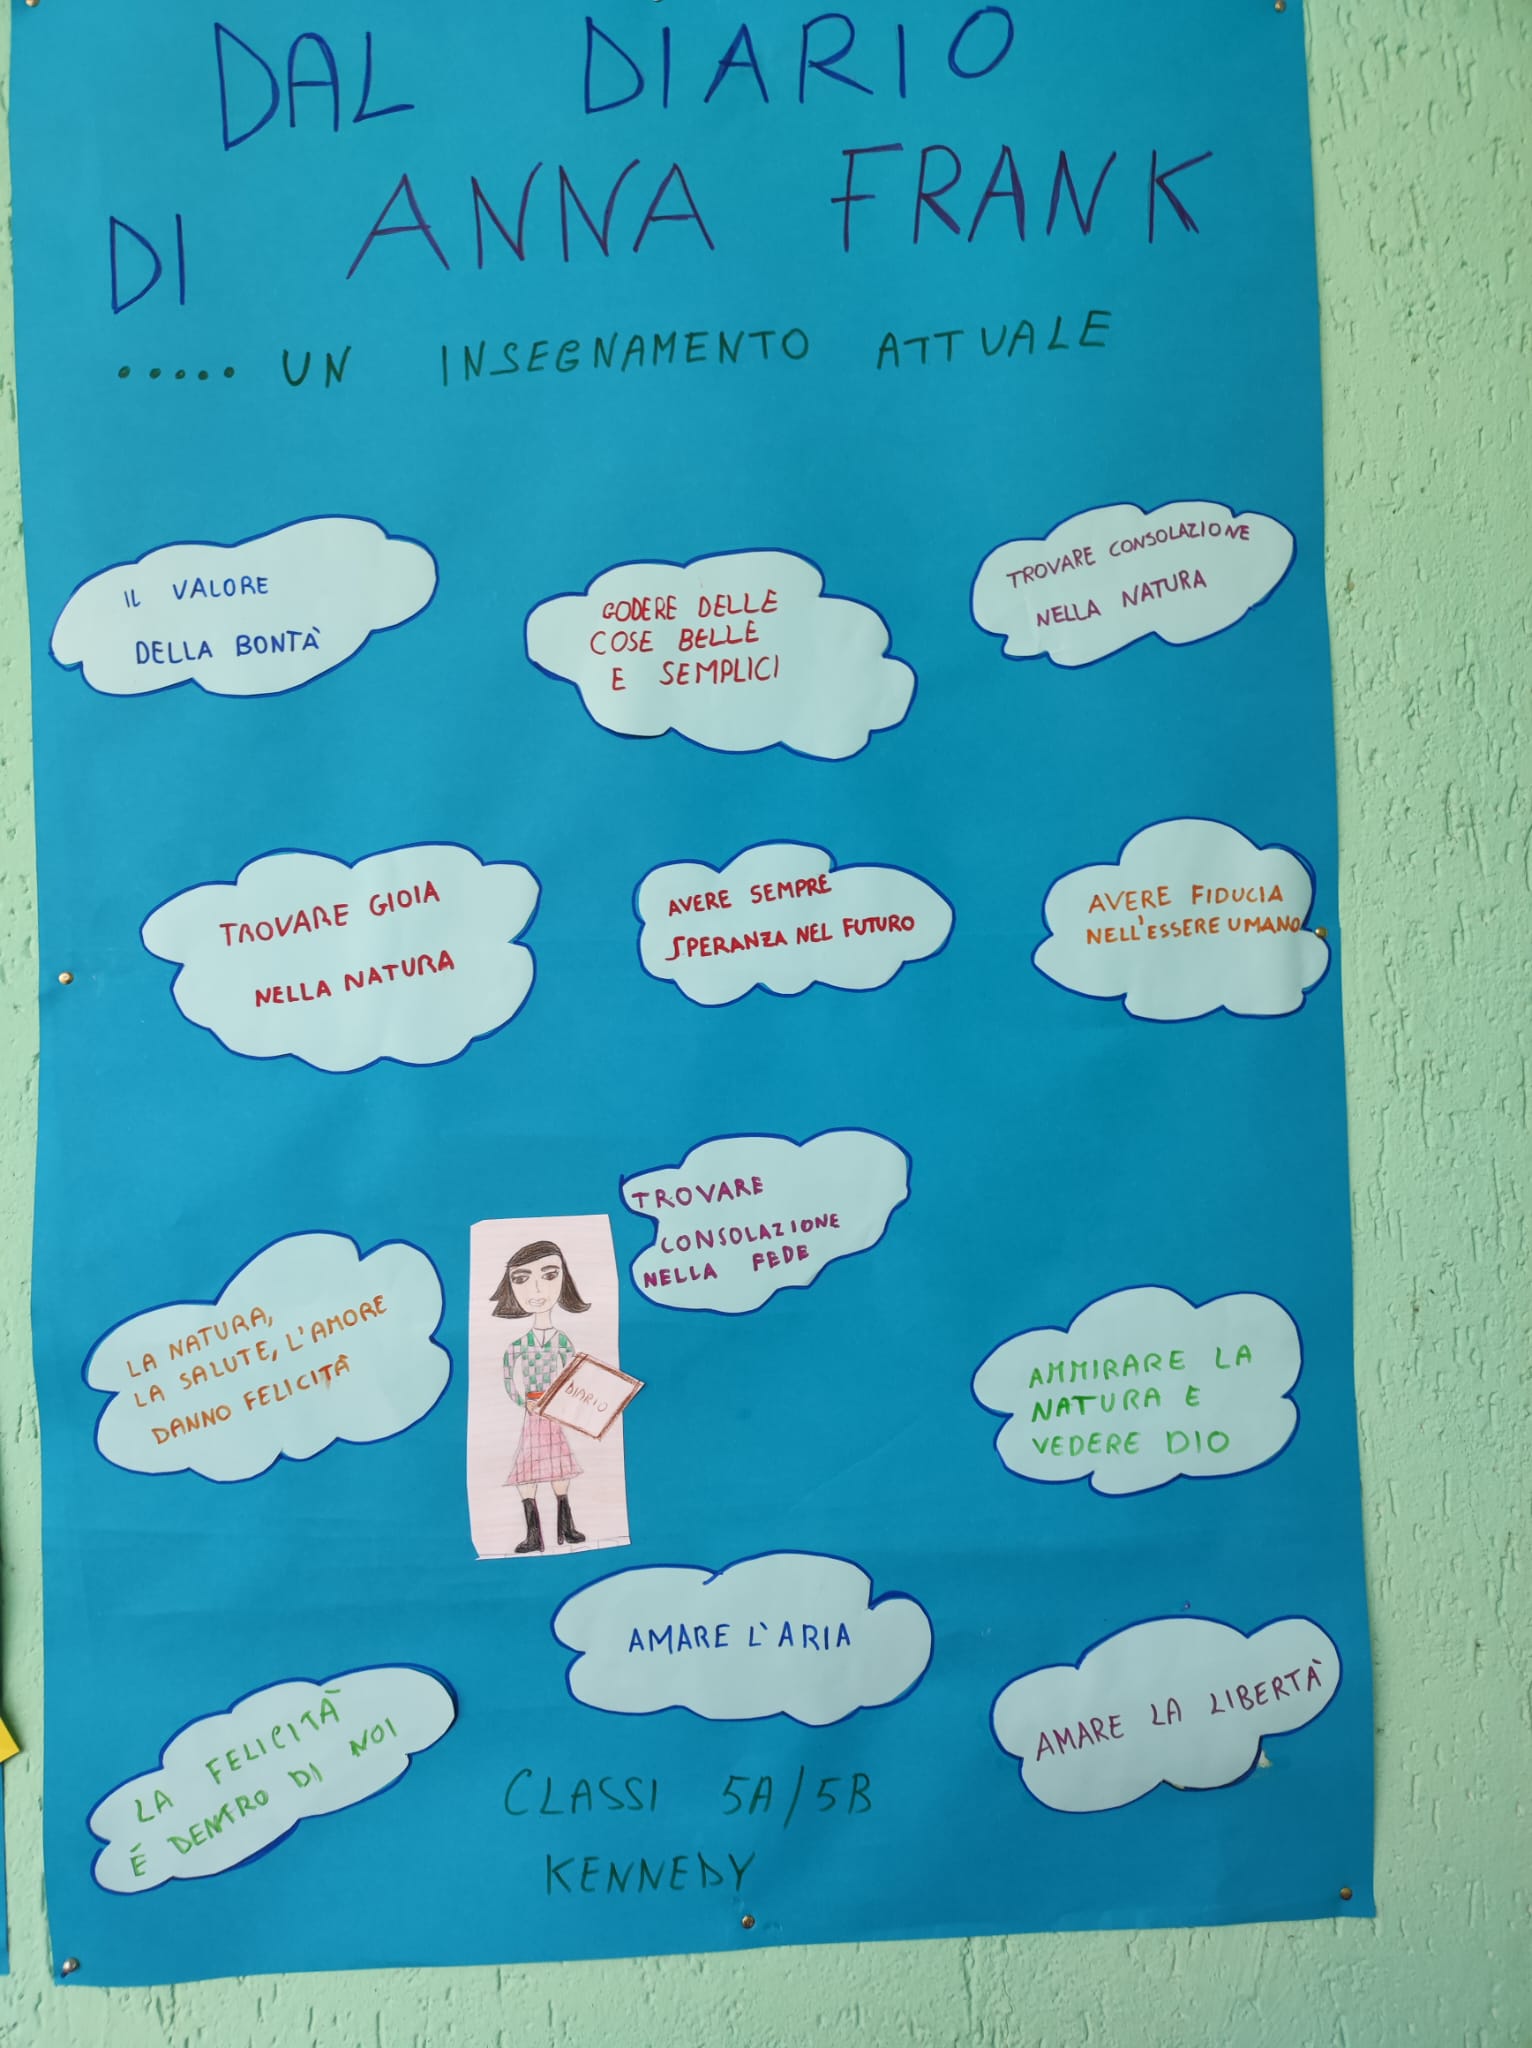 DAL DIARIO
DI ANNA FRANK
..... UN INSEGNAMENTO ATTUALE
IL VALORE
DELLA BONTÀ
GODERE DELLE
COSE BELLE
E SEMPLICI
TROVARE CONSOLAZIONE
NELLA NATURA
TROVARE GIOIA
NELLA NATURA
AVERE SEMPRE
SPERANZA NEL FUTURO
AVERE FIDUCIA
NELL'ESSERE UMANO
TROVARE
CONSOLAZIONE
NELLA FEDE
LA NATURA,
LA SALUTE, L'AMORE
DANNO FELICITÀ
DIARIO
AMMIRARE LA
NATURA E
VEDERE DIO
AMARE L'ARIA
AMARE LA LIBERTÀ
LA FELICITÀ
É DENTRO DI NOI
CLASSI 5A/5B
KENNEDY